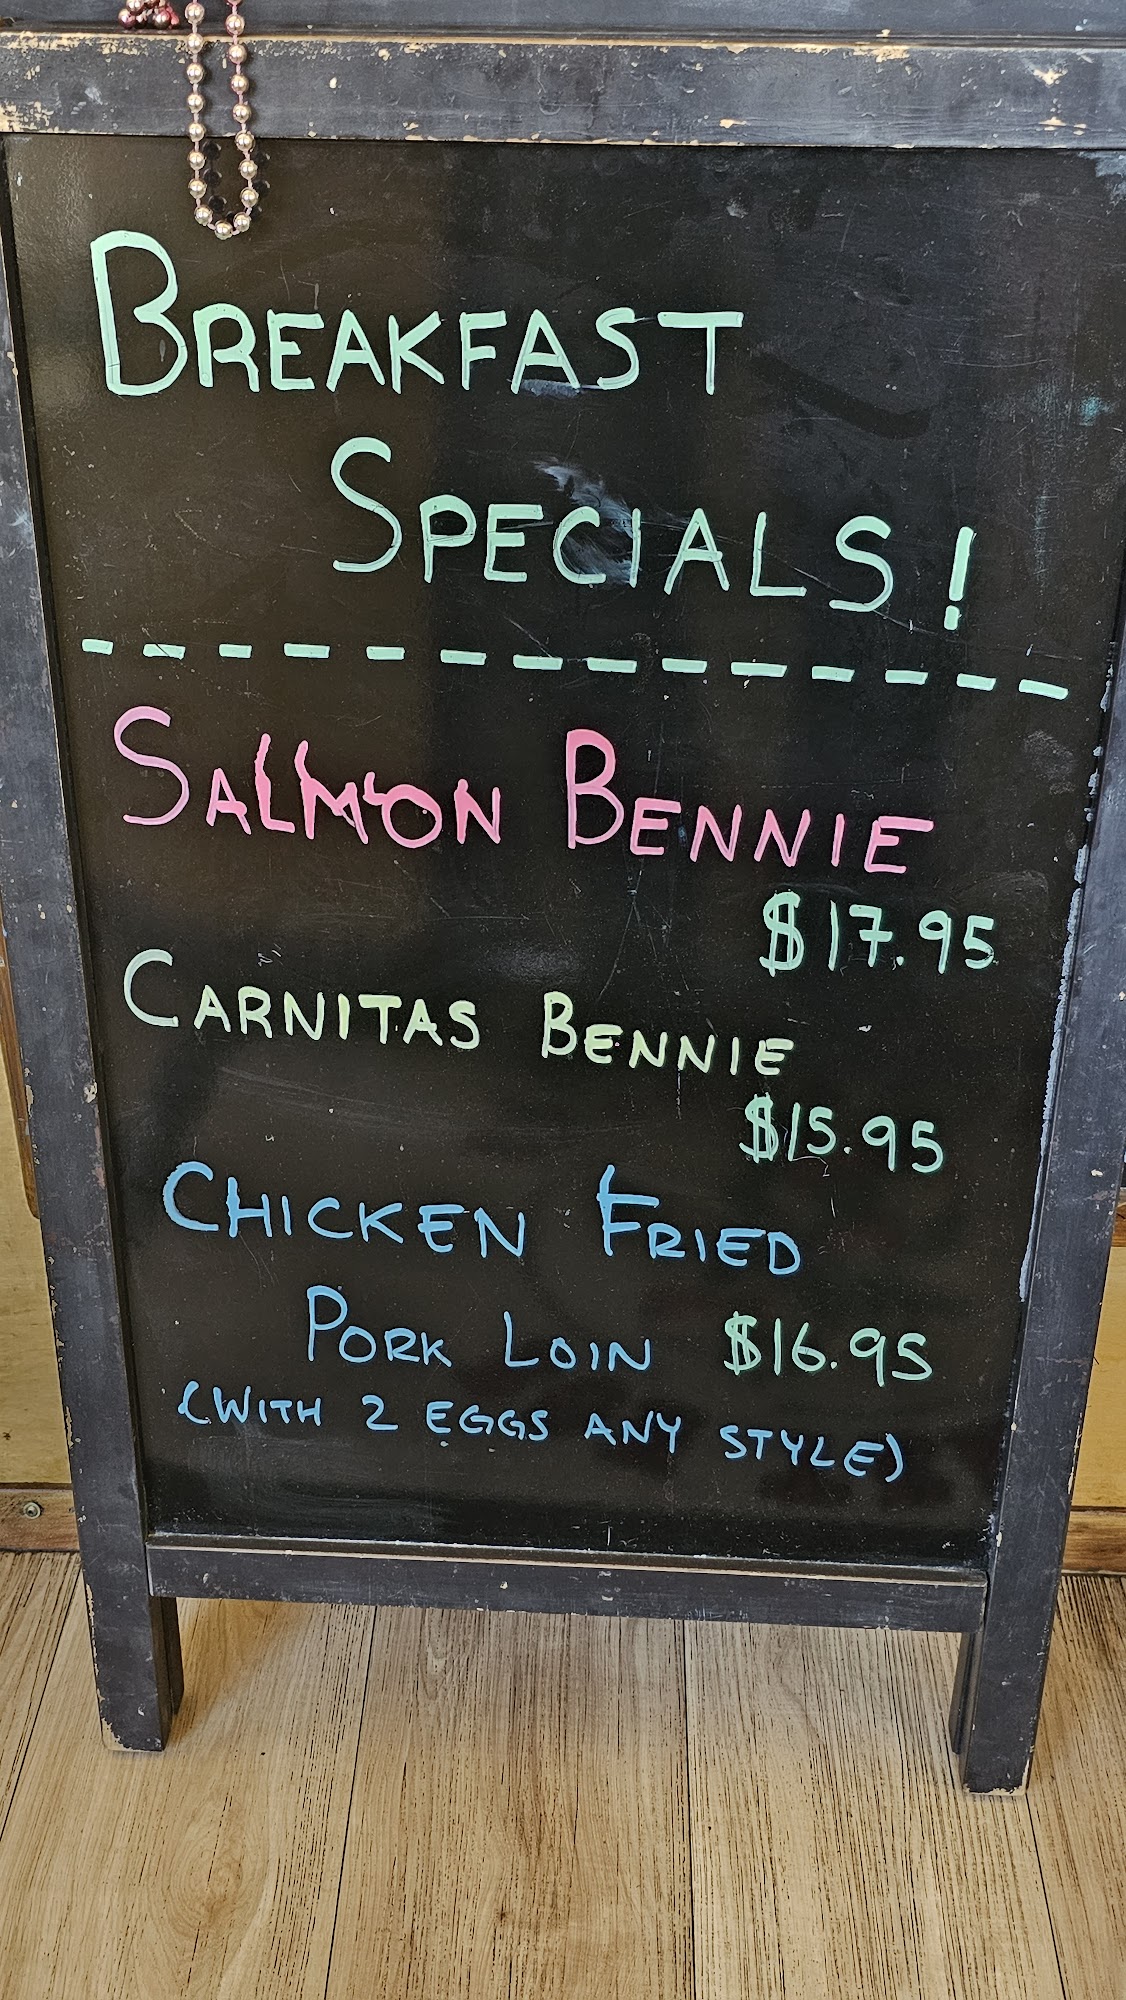 BREAKFAST
SPECIALS!
SALMON BENNIE
$17.95
CARNITAS BENNIE
$15.95
CHICKEN FRIED
PORK LOIN $16.95
(WITH 2 EGGS ANY STYLE)